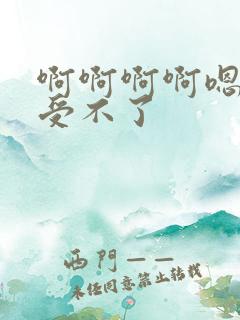 啊啊啊啊嗯
受不了
西門——
未经同意禁止转载